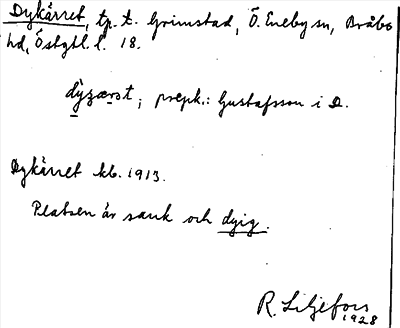 Dykärret, tp. t. Grimstad, Ö. Eneby sn, Bråbo
hd, Östgtl. l. 18.
dỳʒærət; prepk.: Gustafsson i D.
Dykärret kb. 1913.
Platsen är sank och dyig.
R. Liljefors
1928